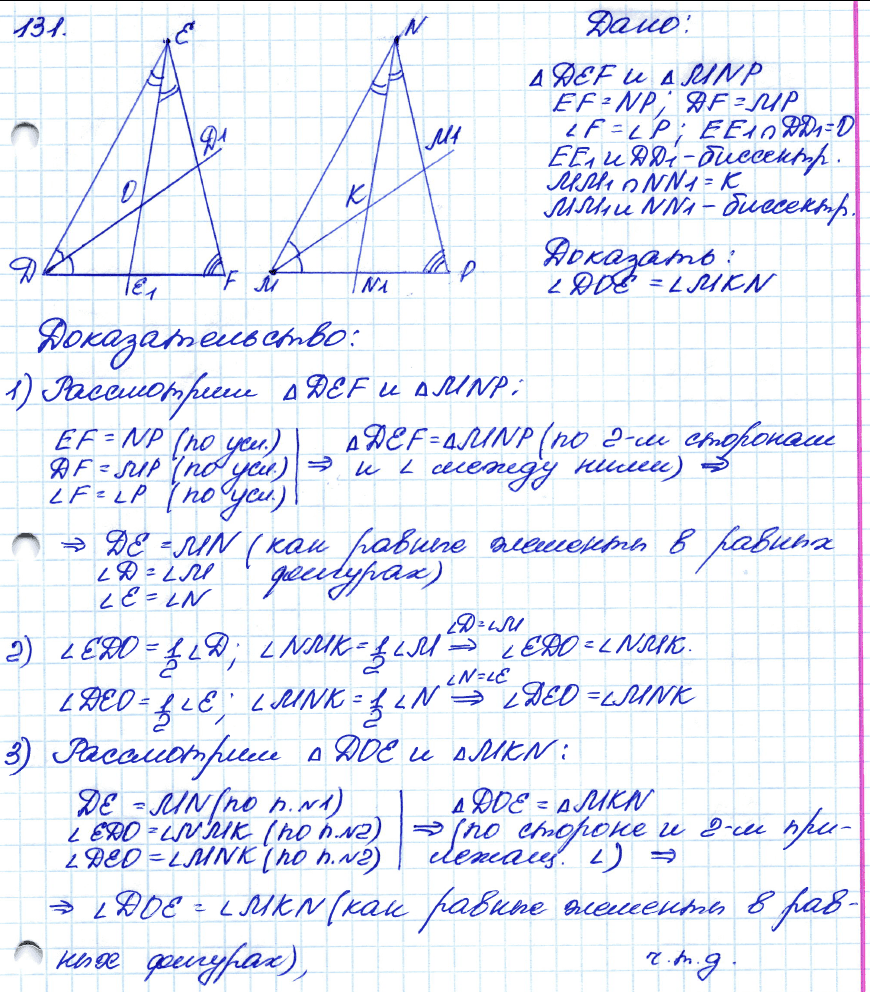 131.
E
D1
O
D
E1
F
N
M1
K
M
N1
P
Дано:
△DEF и △MNP
EF = NP; DF = MP
∠F = ∠P; EE1 ∩ DD1 = O
EE1 и DD1 - биссектр.
MM1 ∩ NN1 = K
MM1 и NN1 - биссектр.
Доказать:
∠DOE = ∠MKN
Доказательство:
1) Рассмотрим △DEF и △MNP:
EF = NP (по усл.) | △DEF = △MNP (по 2-м сторонам
DF = MP (по усл.) | ⇒ и ∠ между ними) ⇒
∠F = ∠P (по усл.) |
⇒ DE = MN (как равные элементы в равных
∠D = ∠M фигурах)
∠E = ∠N
∠D = ∠M
2) ∠EDO = 1/2 ∠D; ∠NMK = 1/2 ∠M ⇒ ∠EDO = ∠NMK.
∠N = ∠E
∠DEO = 1/2 ∠E; ∠MNK = 1/2 ∠N ⇒ ∠DEO = ∠MNK
3) Рассмотрим △DOE и △MKN:
DE = MN (по п.N1) | △DOE = △MKN
∠EDO = ∠NMK (по п.N2) | ⇒ (по стороне и 2-м при-
∠DEO = ∠MNK (по п.N2) | лежащ. ∠) ⇒
⇒ ∠DOE = ∠MKN (как равные элементы в рав-
ных фигурах),
ч.т.д.